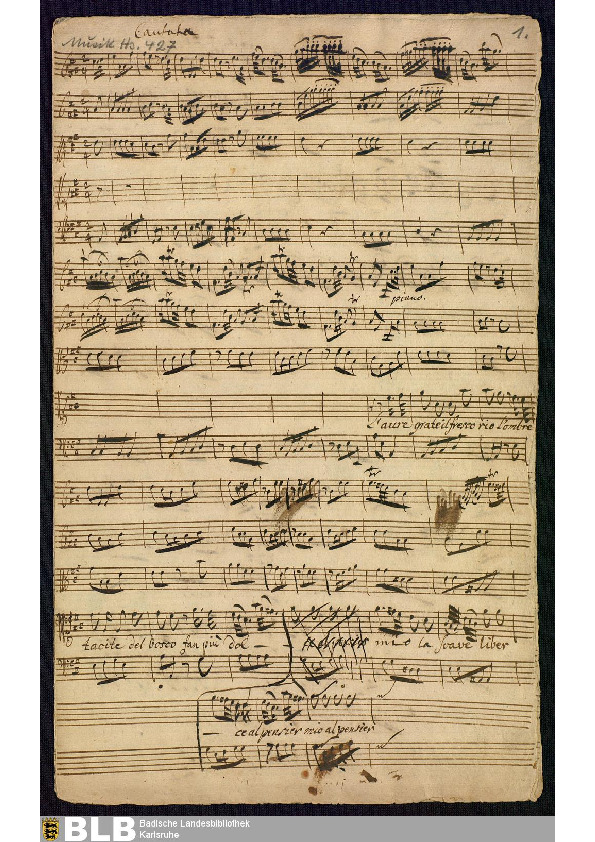 Cantata
1.
Musik Hs. 427
piano.
L'aure grate il fresco rio l'ombre
tacite del bosco fan più dol
mio la soave liber
ce al pensier mio al pensier
BLB
Badische Landesbibliothek
Karlsruhe